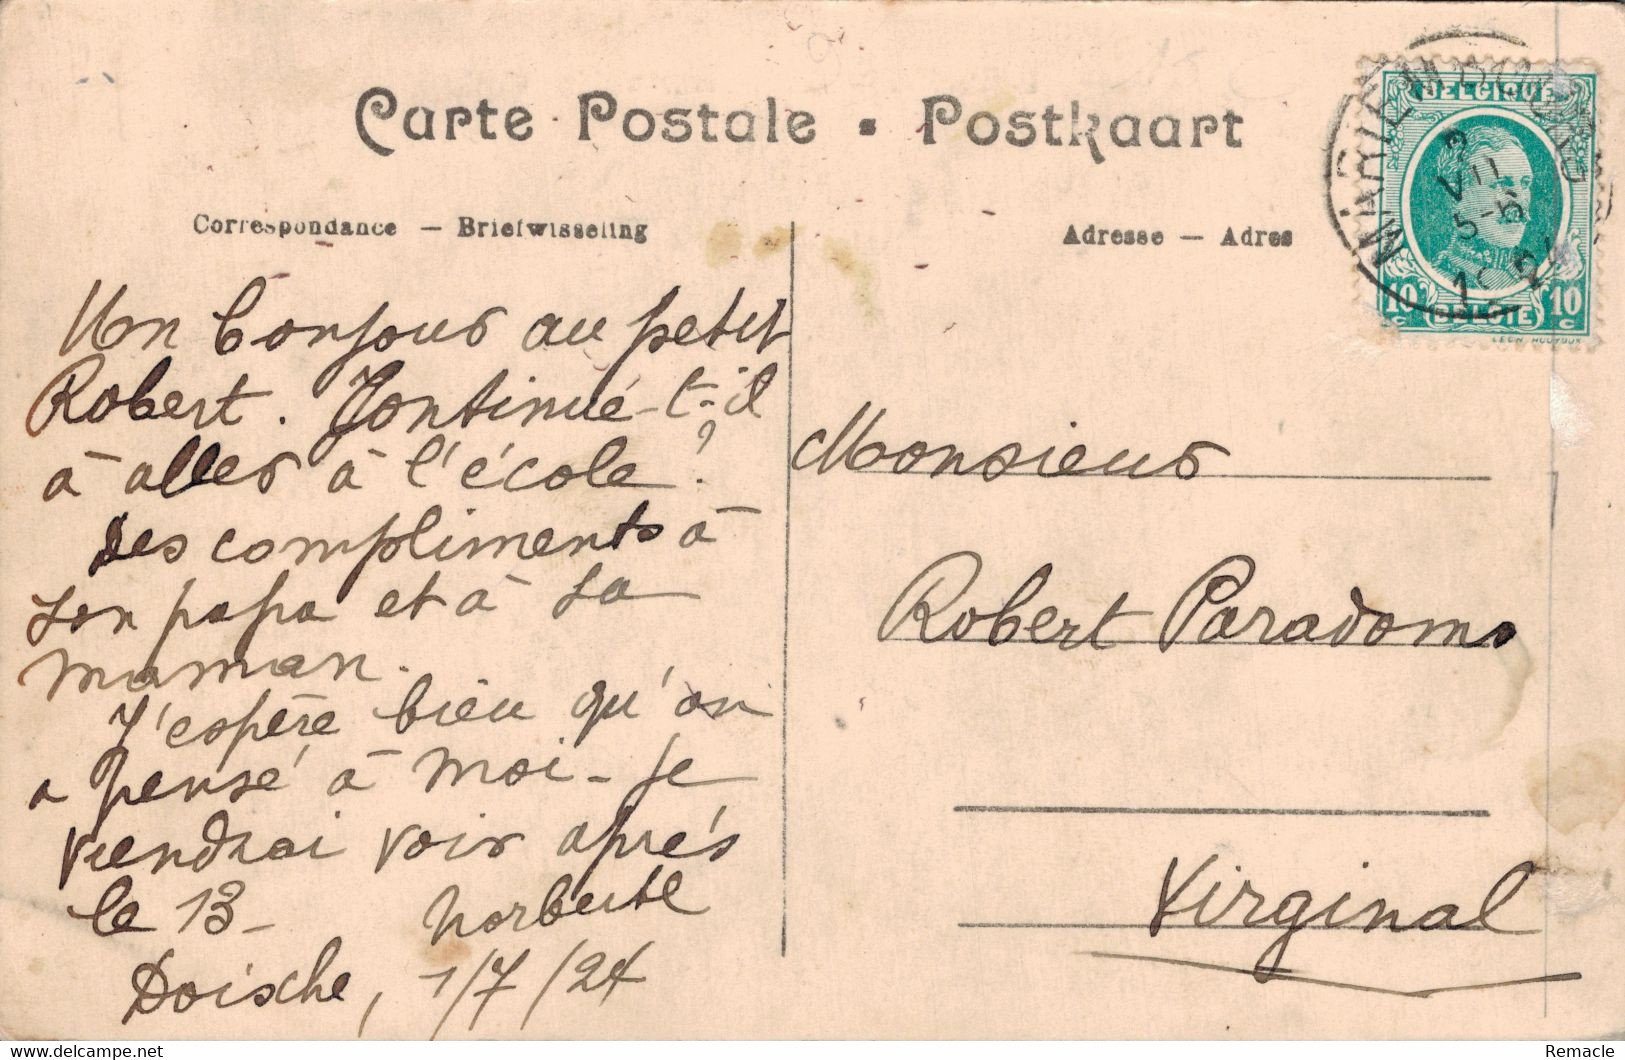 Carte Postale . Postkaart
Correspondance — Briefwisseling
Adresse — Adres
BELGIQUE
10 c
BELGIË
10 c
MARIEMBOURG
2
VII
5-6
Un bonjour au petit
Robert. Continue-t-il
à aller à l'école?
Des compliments à
son papa et à sa
maman.
J'espère bien qu'on
a pensé à moi - je
viendrai voir après
le 13 -
Norbert
Doische, 1/7/24
Monsieur
Robert Paradoms
Virginal
delcampe.net
Remacle